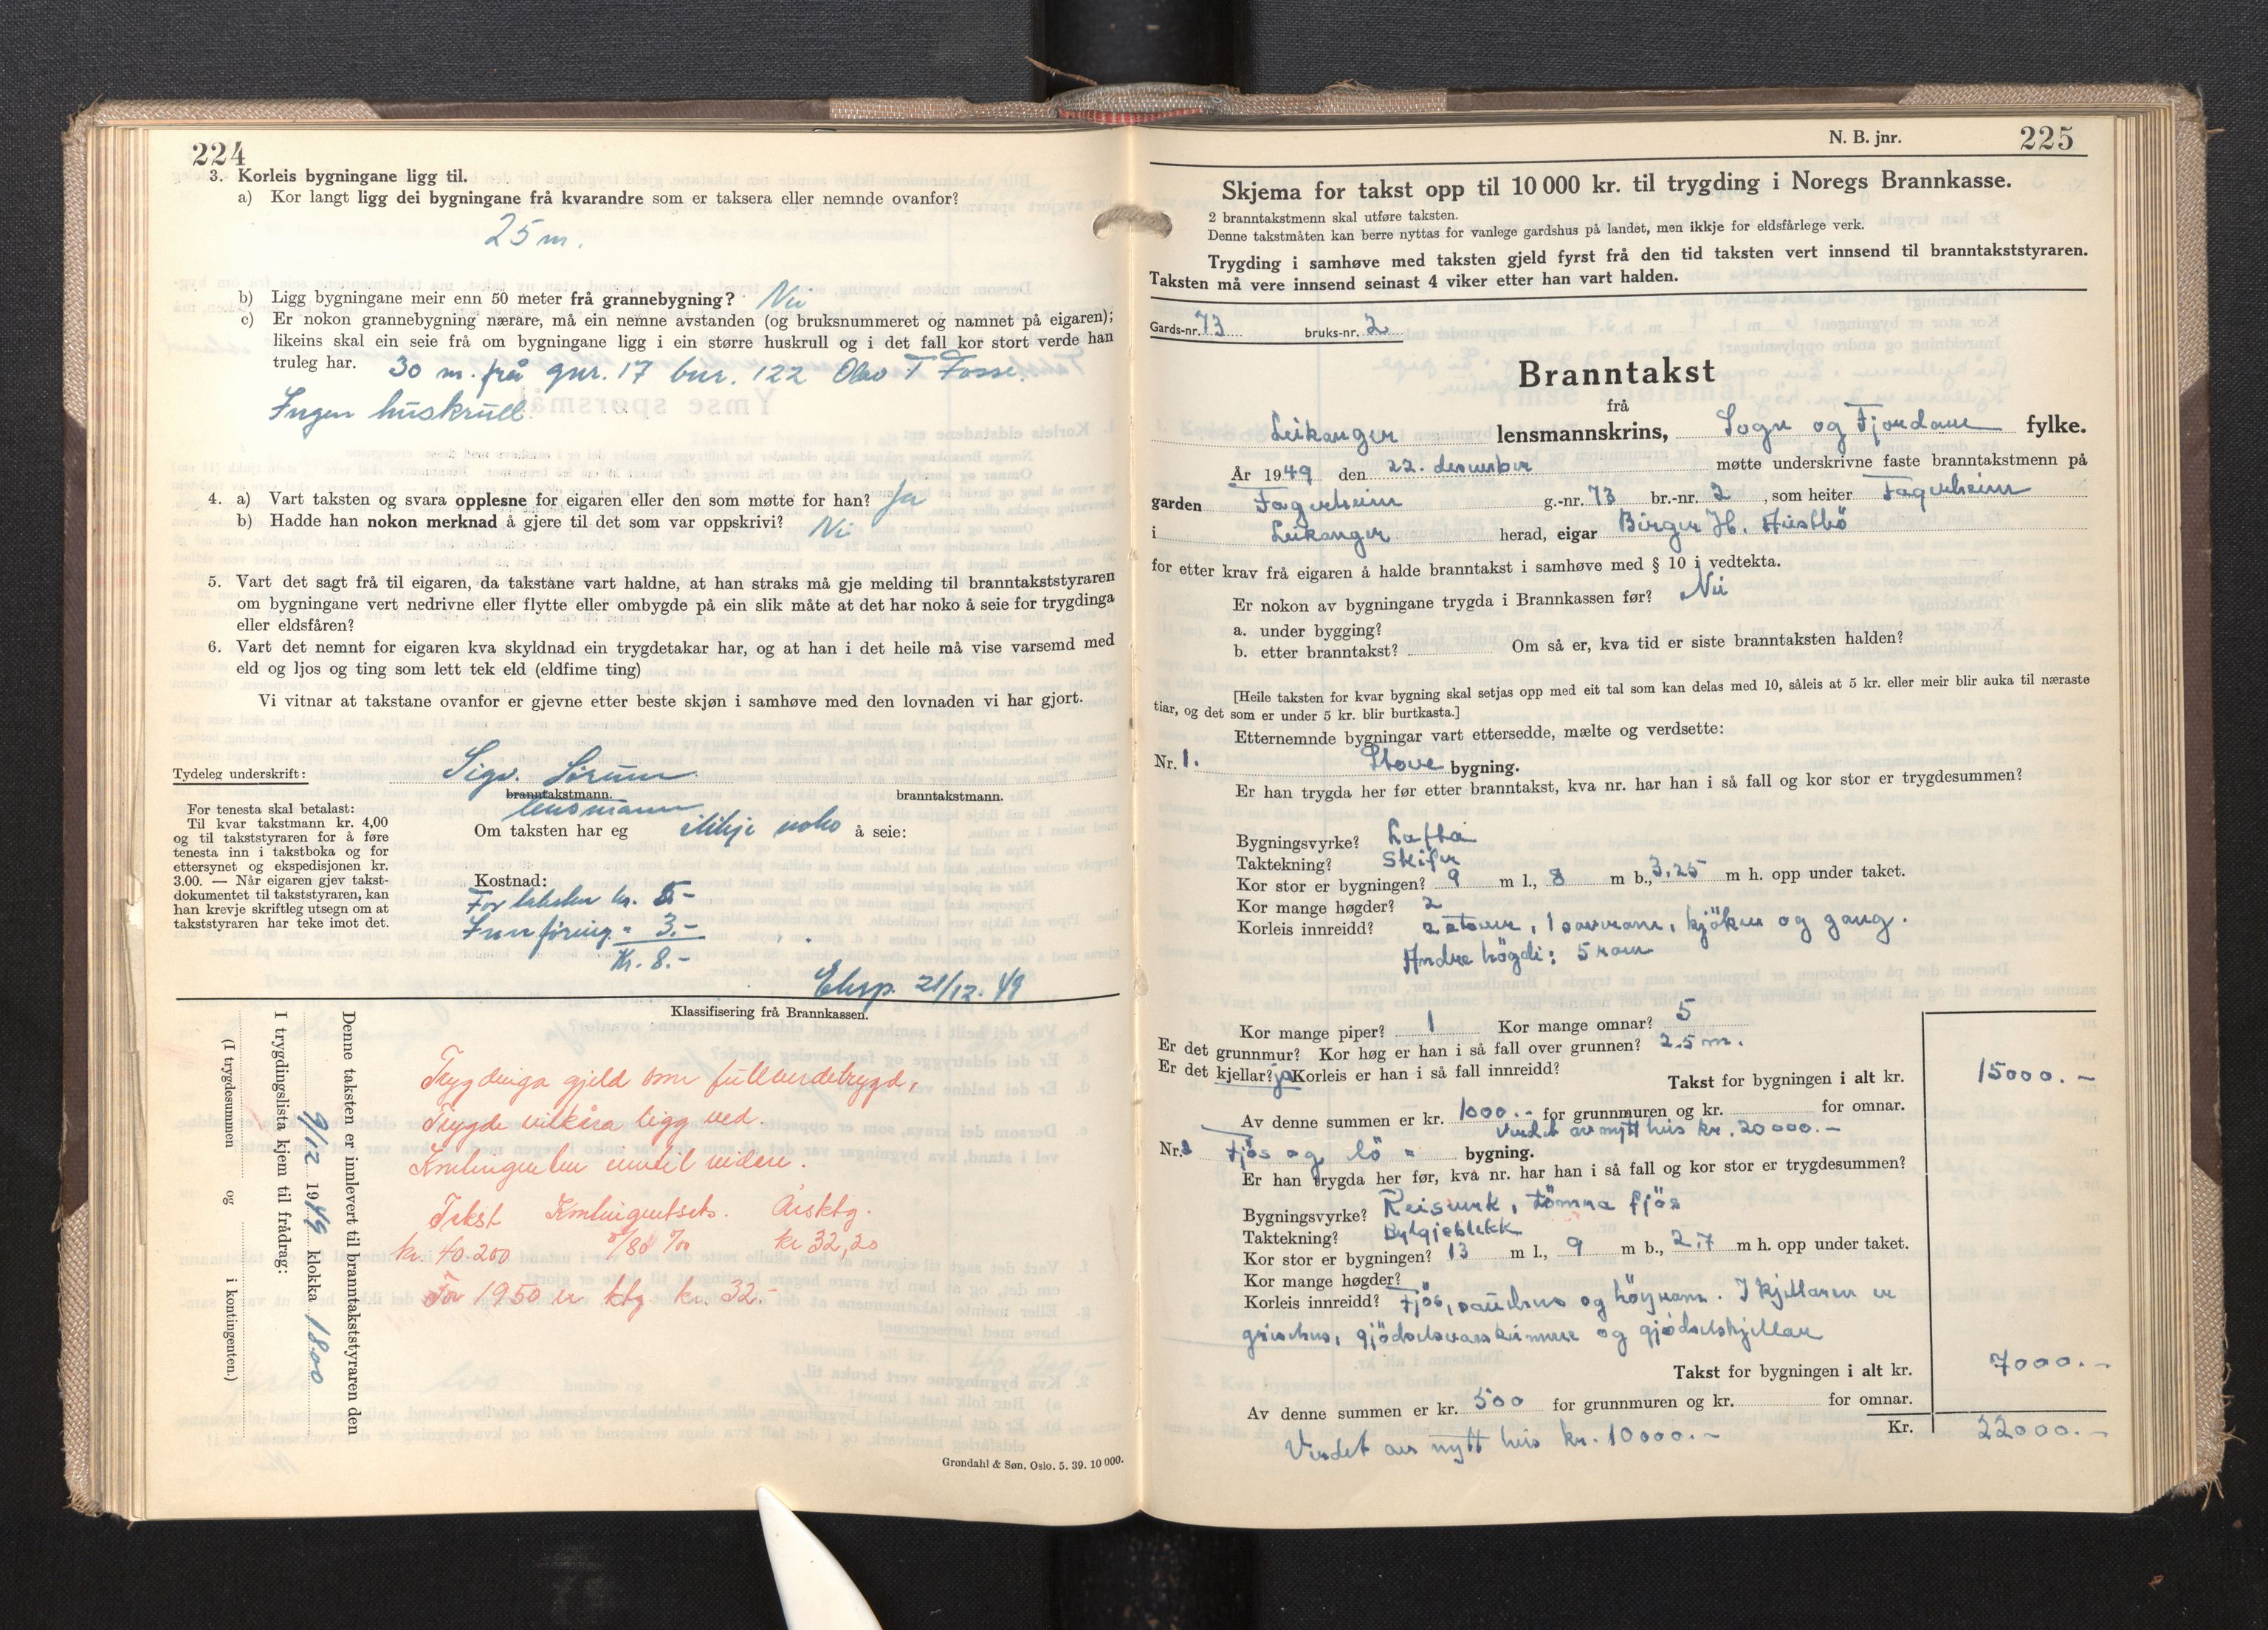 224
3. Korleis bygningane ligg til.
a) Kor langt ligg dei bygningane frå kvarandre som er taksera eller nemnde ovanfor?
25 m.
b) Ligg bygningane meir enn 50 meter frå grannebygning? Nei
c) Er nokon grannebygning nærare, må ein nemne avstanden (og bruksnummeret og namnet på eigaren);
likeins skal ein seie frå om bygningane ligg i ein større huskrull og i det fall kor stort verde han
truleg har. 30 m. frå gnr. 17 bnr. 122 Olav T Fosse.
Ingen huskrull.
4. a) Vart taksten og svara opplesne for eigaren eller den som møtte for han? Ja
b) Hadde han nokon merknad å gjere til det som var oppskrivi? Nei
5. Vart det sagt frå til eigaren, da takstane vart haldne, at han straks må gje melding til branntakststyraren
om bygningane vert nedrivne eller flytte eller ombygde på ein slik måte at det har noko å seie for trygdinga
eller eldsfåren?
6. Vart det nemnt for eigaren kva skyldnad ein trygdetakar har, og at han i det heile må vise varsemd med
eld og ljos og ting som lett tek eld (eldfime ting)
Vi vitnar at takstane ovanfor er gjevne etter beste skjøn i samhøve med den lovnaden vi har gjort.
Tydeleg underskrift: Sigv. Sørum
branntakstmann. branntakstmann.
lensmann
Om taksten har eg ikkje noko å seie:
For tenesta skal betalast:
Til kvar takstmann kr. 4,00
og til takststyraren for å føre
tenesta inn i takstboka og for
ettersynet og ekspedisjonen kr.
3.00. — Når eigaren gjev takst-
dokumentet til takststyraren, kan
han krevje skriftleg utsegn om at
takststyraren har teke imot det.
Kostnad:
For taksten kr. 5-
Innføring " 3.-
Kr. 8.-
Eksp. 21/12. 49
Klassifisering frå Brannkassen.
Trygdinga gjeld som fullverdetrygd,
Trygde vilkåra ligg ved.
Kontingenten inntil vidare.
Takst Kontingentsats. Årsktg.
kr. 40.200 0/80 ‰ kr 32,20
For 1950 er ktg kr. 32.-
Denne taksten er innlevert til branntakststyraren den
9/12 1949 klokka 18.00
I trygdingslista kjem til frådrag:
(I trygdesummen og i kontingenten.)
Grøndahl & Søn. Oslo. 5. 39. 10 000.
N. B. jnr. 225
Skjema for takst opp til 10 000 kr. til trygding i Noregs Brannkasse.
2 branntakstmenn skal utføre taksten.
Denne takstmåten kan berre nyttas for vanlege gardshus på landet, men ikkje for eldsfårlege verk.
Trygding i samhøve med taksten gjeld fyrst frå den tid taksten vert innsend til branntakststyraren.
Taksten må vere innsend seinast 4 viker etter han vart halden.
Gards-nr. 73 bruks-nr. 2
Branntakst
frå
Leikanger lensmannskrins, Sogn og Fjordane fylke.
År 1949 den 22. desember møtte underskrivne faste branntakstmenn på
garden Fagerheim g.-nr. 73 br.-nr. 2, som heiter Fagerheim
i Leikanger herad, eigar Birger H. Hustbö
for etter krav frå eigaren å halde branntakst i samhøve med § 10 i vedtekta.
Er nokon av bygningane trygda i Brannkassen før? Nei
a. under bygging?
b. etter branntakst? Om så er, kva tid er siste branntaksten halden?
[Heile taksten for kvar bygning skal setjas opp med eit tal som kan delas med 10, såleis at 5 kr. eller meir blir auka til næraste
tiar, og det som er under 5 kr. blir burtkasta.]
Etternemnde bygningar vart ettersedde, mælte og verdsette:
Nr. 1. Stove bygning.
Er han trygda her før etter branntakst, kva nr. har han i så fall og kor stor er trygdesummen?
Bygningsvyrke? Lafta
Taktekning? Skifer
Kor stor er bygningen? 9 m l., 8 m b., 3,25 m h. opp under taket.
Kor mange høgder? 2
Korleis innreidd? 2 stover, 1 soverom, kjöken og gang.
Andre högdi: 5 rom
Kor mange piper? 1 Kor mange omnar? 5
Er det grunnmur? Kor høg er han i så fall over grunnen? 2.5 m.
Er det kjellar? ja Korleis er han i så fall innreidd?
Takst for bygningen i alt kr. 15000.-
Av denne summen er kr. 1000.- for grunnmuren og kr. for omnar.
Verdet av nytt hus kr. 20000.-
Nr. 2 Fjös og lö - bygning.
Er han trygda her før, kva nr. har han i så fall og kor stor er trygdesummen?
Bygningsvyrke? Reisverk, tömra fjös
Taktekning? Bylgjeblekk
Kor stor er bygningen? 13 m l., 9 m b., 2,7 m h. opp under taket.
Kor mange høgder?
Korleis innreidd? Fjös, sauehus og höyrom. I kjellaren er
grisehus, gjödselsvasskummer og gjödselskjellar
Takst for bygningen i alt kr. 7000.-
Av denne summen er kr. 500 for grunnmuren og kr. for omnar.
Kr. 22000.-
Verdet av nytt hus kr. 10000.-